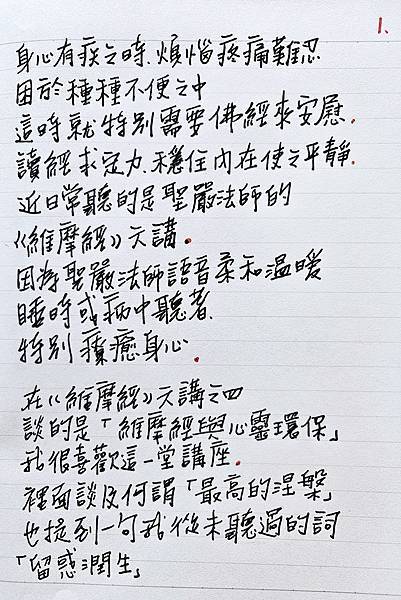 1.
身心有疾之時.煩惱疼痛難忍
困於種種不便之中
這時就特別需要佛經來安慰.
讀經求定力.穩住內在使之平靜.
近日常聽的是聖嚴法師的
《維摩經》六講。
因為聖嚴法師語音柔和溫暖
睡時或病中聽著.
特別療癒身心.
在《維摩經》六講之四
談的是「維摩經與心靈環保」
我很喜歡這一堂講座.
裡面談及何謂「最高的涅槃」
也提到一句我從未聽過的詞
「留惑潤生」